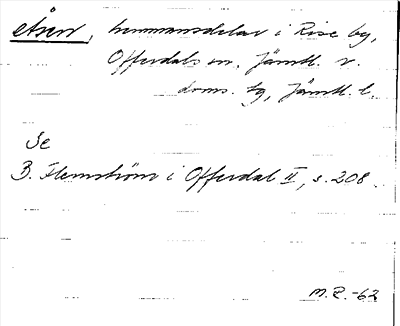 hemmansdelar i Rise by,
Offerdals sn, Jämtl. v.
doms. tg, Jämtl. l.
Se
B. Flemström i Offerdal II, s. 208.
M.E.-62